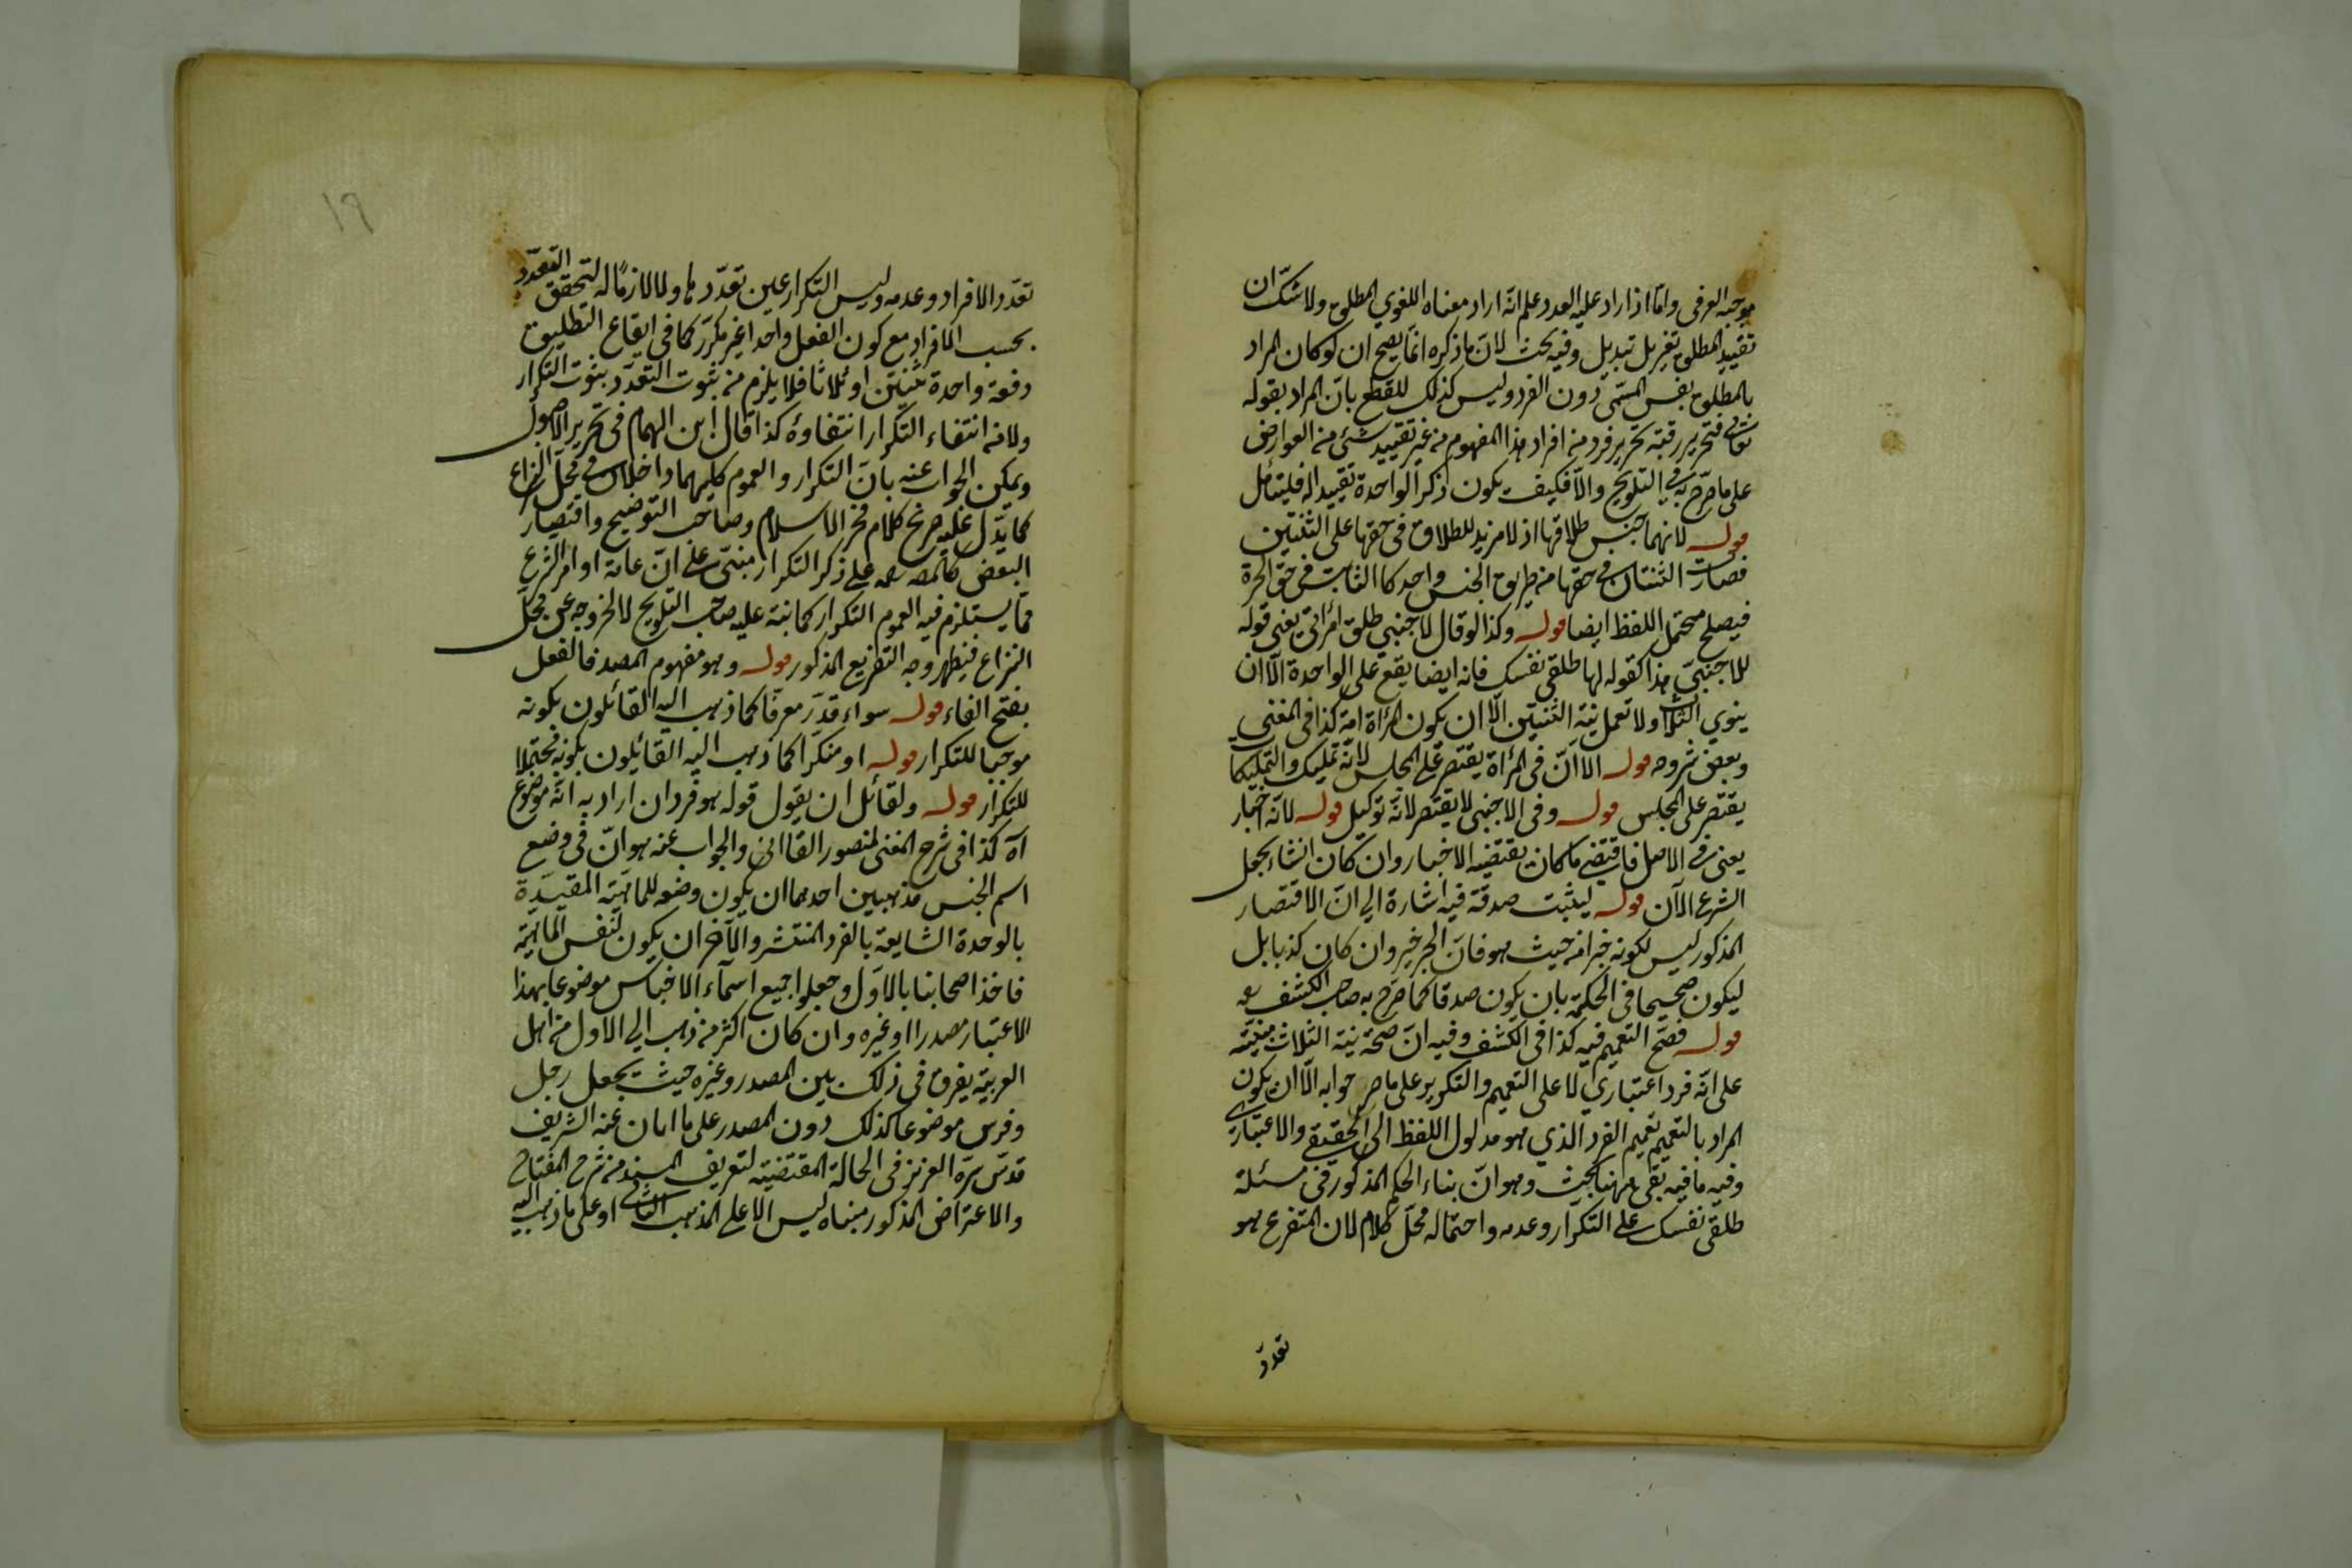 موجبه العرفى وامّا اذا زاد عليه العدد علم انّه اراد معناه اللغوي المطلق ولا شكّ ان
تقييد المطلق تغيير بل تبديل وفيه بحث لانّ ما ذكره انّما يصح ان لو كان المراد
بالمطلق نفس المسمّى دون الفرد وليس كذلك للقطع بانّ المراد بقوله
تعالى فتحرير رقبة تحرير فرد من افراد هذا المفهوم من غير تقييد بشئ من العوارض
على ما صرّح به في التلويح والّا فكيف يكون ذكر الواحدة تقييدا له فليتأمل
قوله لانهما جنس طلاقها اذ لا مزيد للطلاق فى حقها على الثنتين
فصارت الثنتان في حقها من طريق الجنس واحدا كالثابت فى حق الحرة
فيصلح محتمل اللفظ ايضا قوله وكذا لو قال لاجنبي طلق امرأتي يعنى قوله
للاجنبيّ هذا كقوله لها طلقى نفسك فانه ايضا يقع على الواحدة الّا ان
ينوي الثلاث ولا تعمل نية الثنتين الّا ان يكون المرأة امة كذا فى المغني
وبعض شروحه قوله الا انّ فى المرأة يقتصر على المجلس لانّه تمليك والتمليكا
يقتصر على المجلس قوله وفى الاجنبى لا يقتصر لانّه توكيل قوله لانّه اخبار
يعنى في الاصل فاقتضى ما كان يقتضيه الاخبار وان كان انشاء بجعل
الشرع الآن قوله ليثبت صدقه فيه اشارة الى انّ الاقتصار
المذكور ليس لكونه خبرا من حيث هو فانّ الخبر خبر وان كان كذبا بل
ليكون صحيحا فى الحكمة بان يكون صدقا كما صرّح به صاحب الكشف
قوله فصحّ التعميم فيه كذا فى الكشف وفيه انّ صحة نية الثلاث مبنيّة
على انّه فرد اعتباريّ لا على التعميم والتكرير على ما صر جوابه الّا ان يكون
المراد بالتعميم تعميم الفرد الذي هو مدلول اللفظ الى الحقيقى والاعتبارى
وفيه ما فيه بقى ههنا بحث وهو انّ بناء الحكم المذكور فى مسئلة
طلقى نفسك على التكرار وعدمه واحتماله محلّ كلام لان المتفرع هو
تعدد
١٩
تعدّد الافراد وعدمه وليس التكرار عين تعدّدها ولا لازمًا له لتحقق التعدّد
بحسب الافراد مع كون الفعل واحدا غير مكرّر كما فى ايقاع التطليق
دفعة واحدة ثنتين او ثلاثا فلا يلزم من ثبوت التعدّد ثبوت التكرار
ولا من انتفاء التكرار انتفاؤه كذا قال ابن الهمام فى تحرير الاصول
ويمكن الجواب عنه بانّ التكرار والعموم كليهما داخلان في محلّ النزاع
كما يدّل عليه صريح كلام فخر الاسلام وصاحب التوضيح واقتصار
البعض كالمصه على ذكر التكرار مبنىّ على انّ عامة اوامر الشرع
ممّا يستلزم فيه العموم التكرار كما نبّه عليه صاحب التلويح لا لخروجه عن محل
النزاع فيظهر وجه التفريع المذكور قوله وهو مفهوم المصدر فالفعل
بفتح الفاء قوله سواء قدّر معرفا كما ذهب اليه القائلون بكونه
موجبا للتكرار قوله او منكرا كما ذهب اليه القائلون بكونه محتملا
للتكرار قوله ولقائل ان يقول قوله هو فرد ان اراد به انه موضوع
آه كذا فى شرح المغنى لمنصور القاآنى والجواب عنه هو انّ فى وضع
اسم الجنس مذهبين احدهما ان يكون وضعه للماهيّة المقيّدة
بالوحدة الشايعة بالفرد المنتشر والآخر ان يكون لنفس الماهية
فاخذ اصحابنا بالاوّل وجعلوا جميع اسماء الاجناس موضوعا بهذا
الاعتبار مصدرا او غيره وان كان اكثر من ذهب الى الاول من اهل
العربية يفرق فى ذلك بين المصدر وغيره حيث يجعل رجل
وفرس موضوعا كذلك دون المصدر على ما ابان عنه الشريف
قدّس سرّه العزيز فى الحالة المقتضية لتعريف المسند من شرح المفتاح
والاعتراض المذكور مبناه ليس الا على المذهب الثانى او على ما ذهب اليه